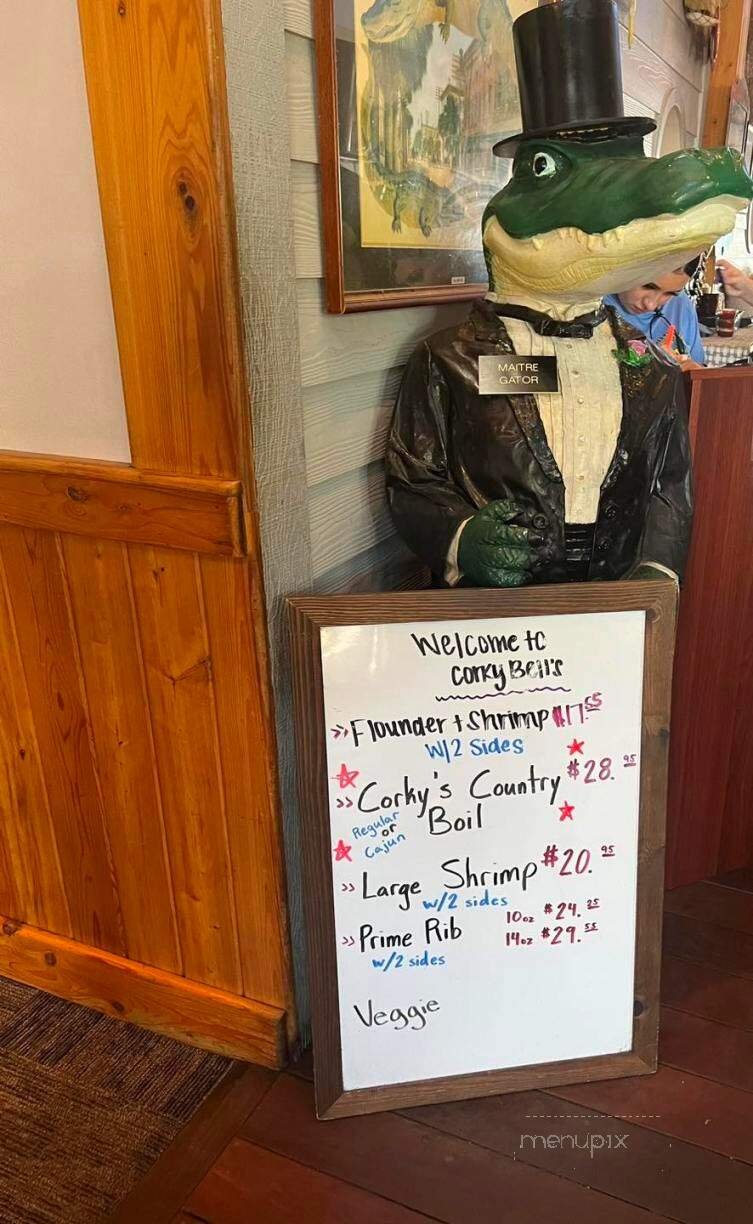 MAITRE
GATOR
Welcome to
Corky Bell's
» Flounder + Shrimp $17.55
w/2 Sides
» Corky's Country $28.95
Boil
Regular
or
Cajun
» Large Shrimp $20.95
w/2 sides
» Prime Rib 10oz $24.25
14oz $29.55
w/2 sides
Veggie
menupix